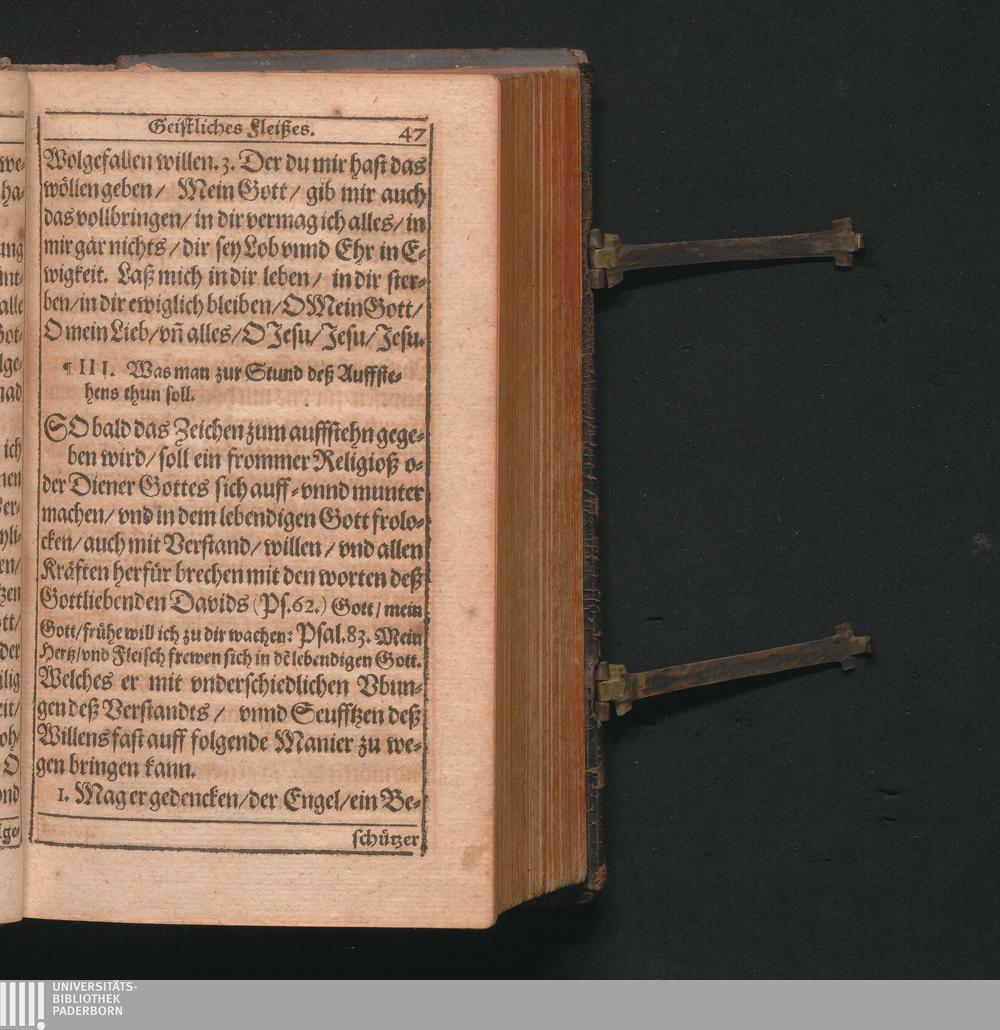 Geistliches Fleißes. 47
Wolgefallen willen. 3. Der du mir hast das
wöllen geben/ Mein Gott/ gib mir auch
das vollbringen/ in dir vermag ich alles/ in
mir gar nichts/ dir sey Lob vnnd Ehr in E-
wigkeit. Laß mich in dir leben/ in dir ster-
ben/ in dir ewiglich bleiben/ O Mein Gott/
O mein Lieb/ vñ alles/ O Jesu/ Jesu/ Jesu.
¶ III. Was man zur Stund deß Auffste-
hens thun soll.
SO bald das Zeichen zum auffstehn gege-
ben wird/ soll ein frommer Religioß o-
der Diener Gottes sich auff- vnnd munter
machen/ vnd in dem lebendigen Gott frolo-
cken/ auch mit Verstand/ willen/ vnd allen
Kräften herfür brechen mit den worten deß
Gottliebenden Davids (Ps. 62.) Gott/ mein
Gott/ frühe will ich zu dir wachen: Psal. 83. Mein
Hertz/ vnd Fleisch frewen sich in dē lebendigen Gott.
Welches er mit vnderschiedlichen Vbun-
gen deß Verstandts/ vnnd Seufftzen deß
Willens fast auff folgende Manier zu we-
gen bringen kann.
1. Mag er gedencken/ der Engel/ ein Be-
schützer
we-
ha-
ung
alle
nad
ich
nen
en/
der
ilig
eit/
oh-
O
ond
UNIVERSITÄTS-
BIBLIOTHEK
PADERBORN